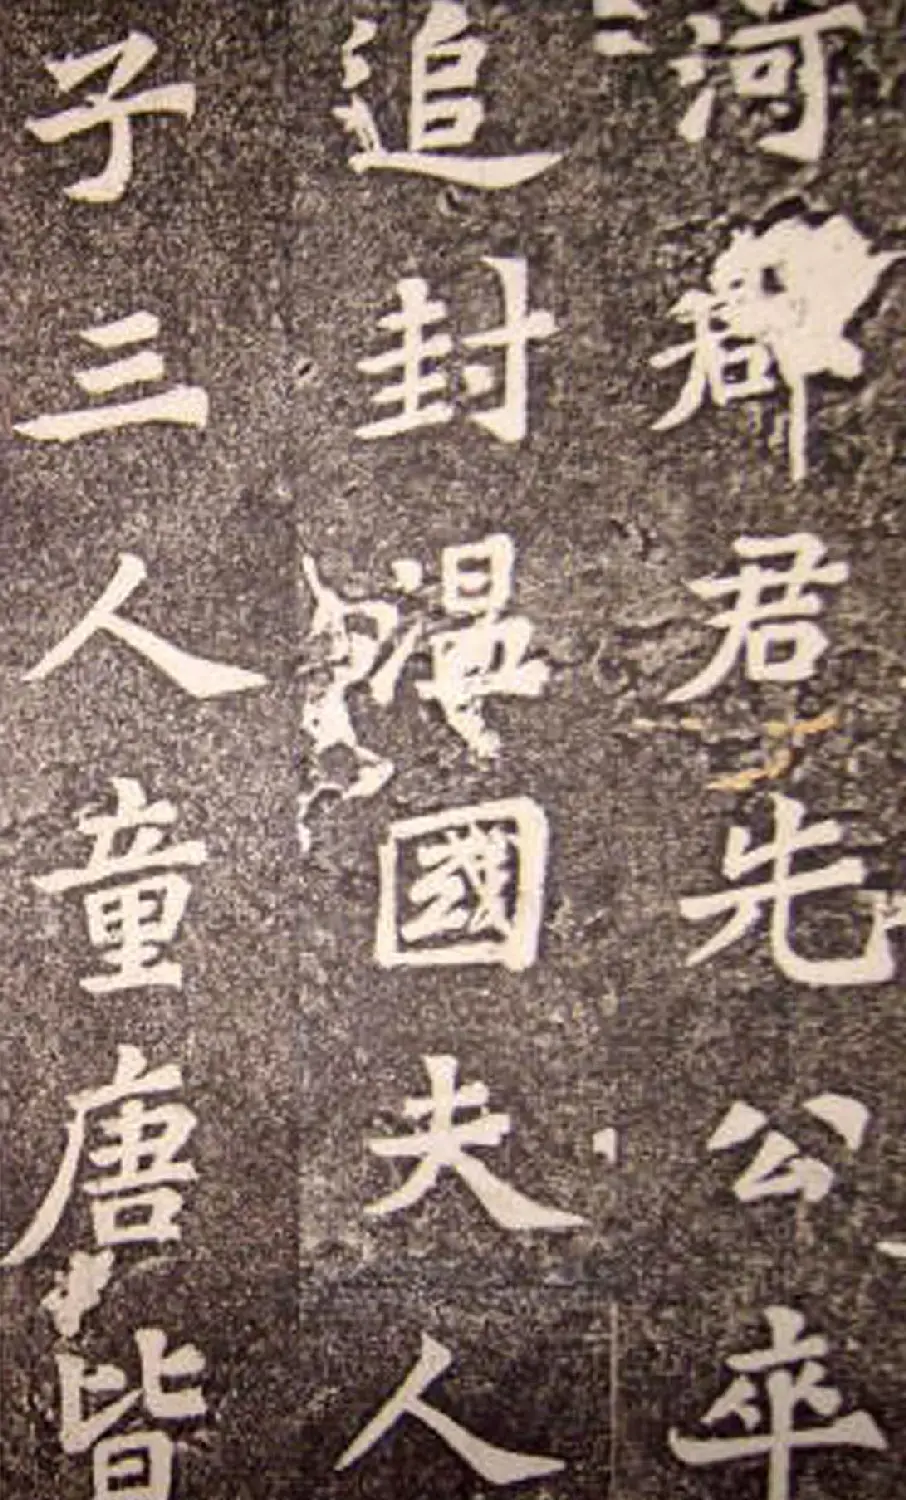 河郡君先公卒
追封溫國夫人
子三人童唐皆